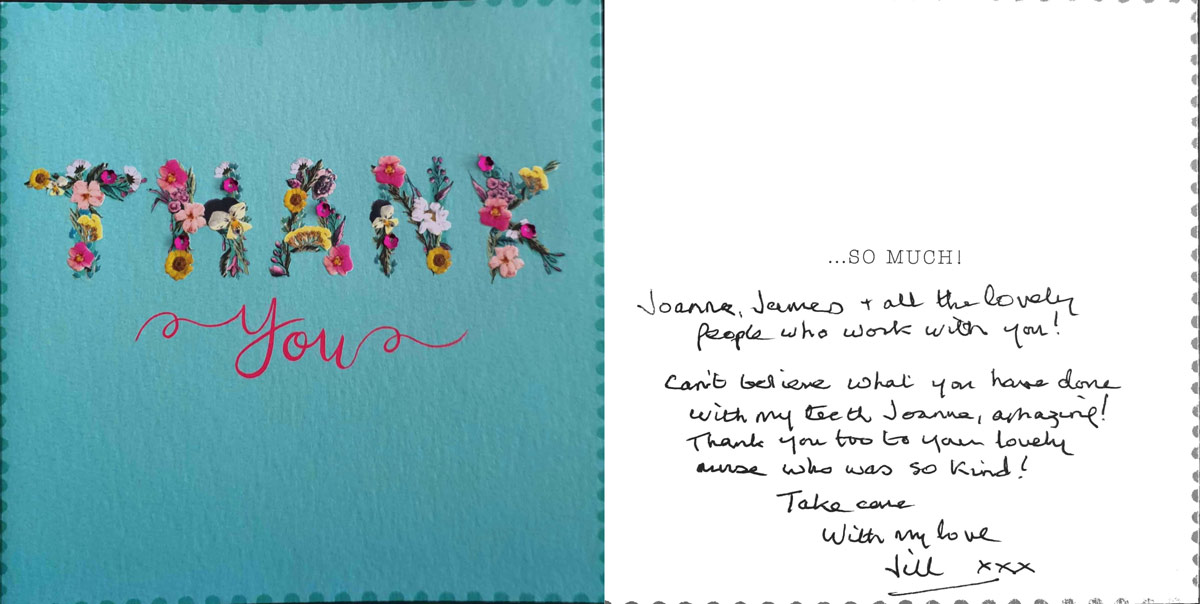 THANK
You
...SO MUCH!
Joanna, James + all the lovely
people who work with you!
Can't believe what you have done
with my teeth Joanna, amazing!
Thank you too to your lovely
nurse who was so kind!
Take care
With my love
Jill xxx